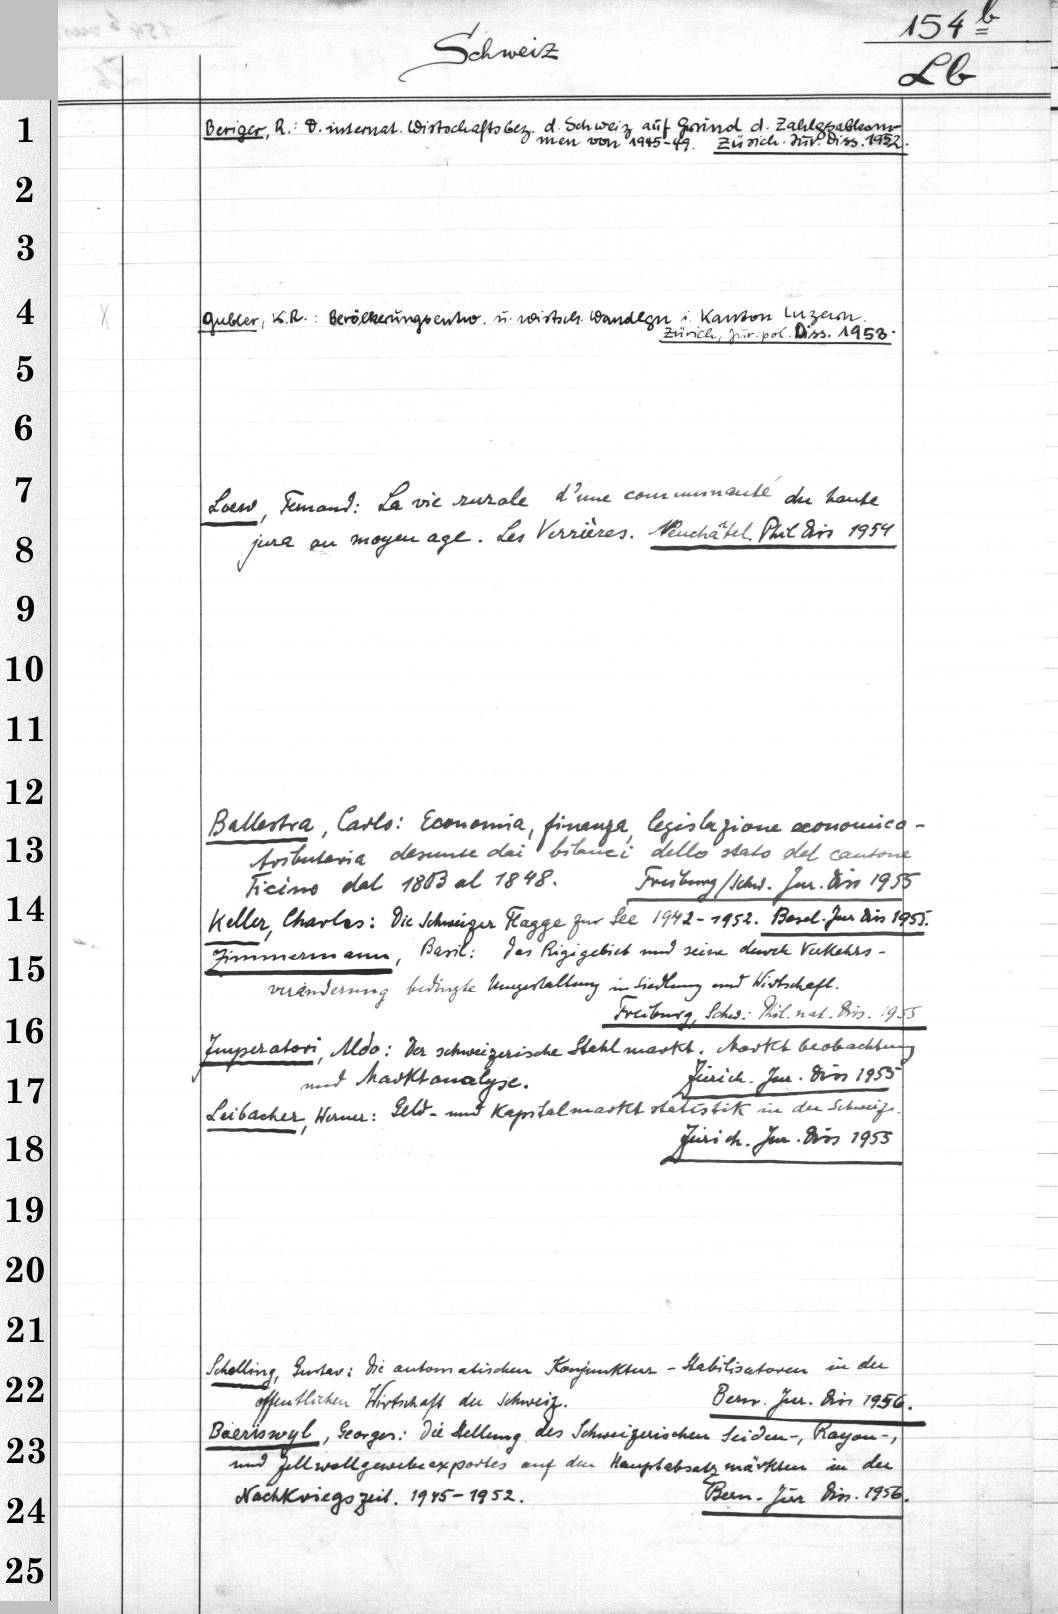 154 b
Schweiz
Lb
1
Beriger, R.: D. internat. Wirtschaftsbez. d. Schweiz auf Grund d. Zahlgsabkom-
men von 1945-49. Zürich. Jur. Diss. 1952.
2
3
4
Gubler, K.R.: Bevölkerungsentw. u. wirtsch. Wandlgn i. Kanton Luzern.
Zürich, Jur. pol. Diss. 1953.
5
6
7
Loew, Fernand: La vie rurale d'une communauté du haute
8
jura au moyen age. Les Verrières. Neuchâtel. Phil Diss 1954
9
10
11
12
Ballestra, Carlo: Economia, finanza, legislazione economico-
13
tributaria desunte dai bilanci dello stato del cantone
Ticino dal 1803 al 1848. Freiburg/Schw. Jur. Diss 1955
14
Keller, Charles: Die Schweizer Flagge zur See 1942-1952. Basel. Jur Diss 1955.
Zimmermann, Basil: Das Rigigebiet und seine durch Verkehrs-
15
veränderung bedingte Umgestaltung in Siedlung und Wirtschaft.
Freiburg, Schw.: Phil. nat. Diss. 1955
16
Imperatori, Aldo: Der schweizerische Stahlmarkt. Marktbeobachtung
17
und Marktanalyse. Zürich. Jur. Diss 1955
Leibacher, Werner: Geld- und Kapitalmarktstatistik in der Schweiz.
18
Zürich. Jur. Diss 1955
19
20
21
Schelling, Gustav: Die automatischen Konjunktur-Stabilisatoren in der
22
öffentlichen Wirtschaft der Schweiz. Bern. Jur. Diss 1956.
Baeriswyl, Georges: Die Stellung des Schweizerischen Seiden-, Rayon-,
23
und Zellwollgewebeexportes auf den Hauptabsatzmärkten in der
24
Nachkriegszeit. 1945-1952. Bern. Jur Diss. 1956.
25